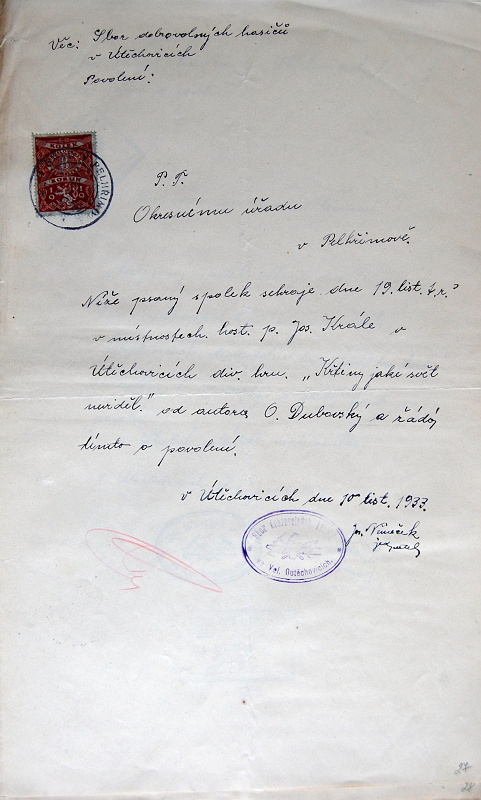 Věc: Sbor dobrovolných hasičů
v Útěchovicích
Povolení:
KOLEK
KORUN
PELHŘIMOV
P. T.
Okresnímu úřadu
v Pelhřimově.
Níže psaný spolek sehraje dne 19. list. t. r.
v místnostech host. p. Jos. Krále v
Útěchovicích div. hru. „Křtiny jaké svět
neviděl." od autora O. Dubovský a žádá
tímto o povolení.
v Útěchovicích dne 10 list. 1933.
Jos. Němeček
jednatel
Sbor dobrovolných
Vel. Outěchovicích.
27
28